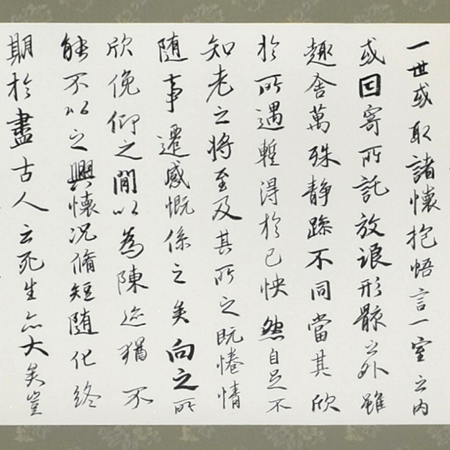 一世或取諸懷抱悟言一室之内
或因寄所託放浪形骸之外雖
趣舎萬殊静躁不同當其欣
於所遇暫得於己快然自足不
知老之将至及其所之既惓情
随事遷感慨係之矣向之所
欣俛仰之閒以為陳迹猶不
能不以之興懷況脩短随化終
期於盡古人云死生亦大矣豈